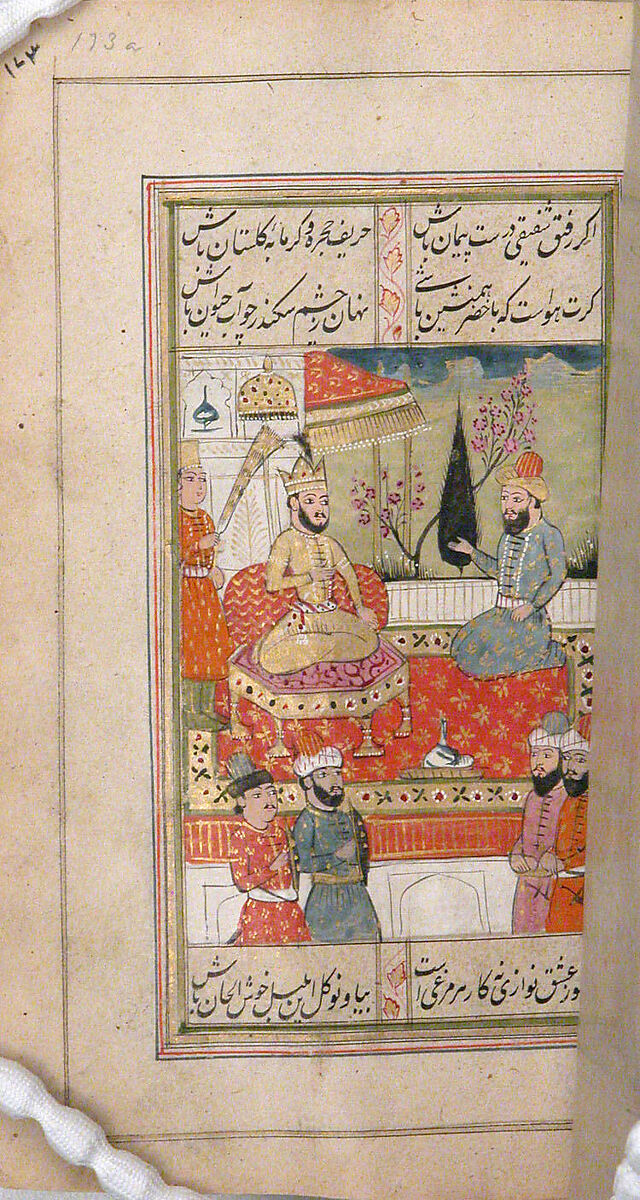 173a
۱۷۳
اگر رفیق شفیقی درست پیمان باش
حریف حجره و کرمابه کلستان باش
کرت هواست که با خضر همنشین باشی
نهان ز چشم سکندر چو آب حیوان باش
ور عشق نوازی نه کار هر مرغی است
بیا و نوکل این بلبل خوش الحان باش